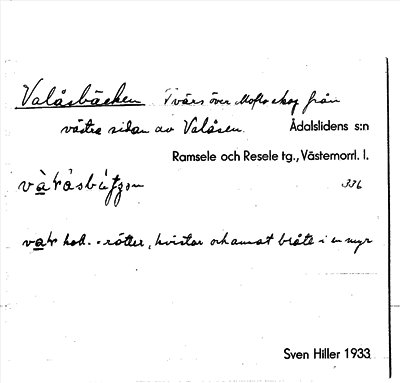 Valåsbäcken Tvärs över Moflo skog från
västra sidan av Valåsen. Ådalslidens s:n
Ramsele och Resele tg., Västernorrl. l.
336
rötter, kvistar och annat bråte i en myr
Sven Hiller 1933